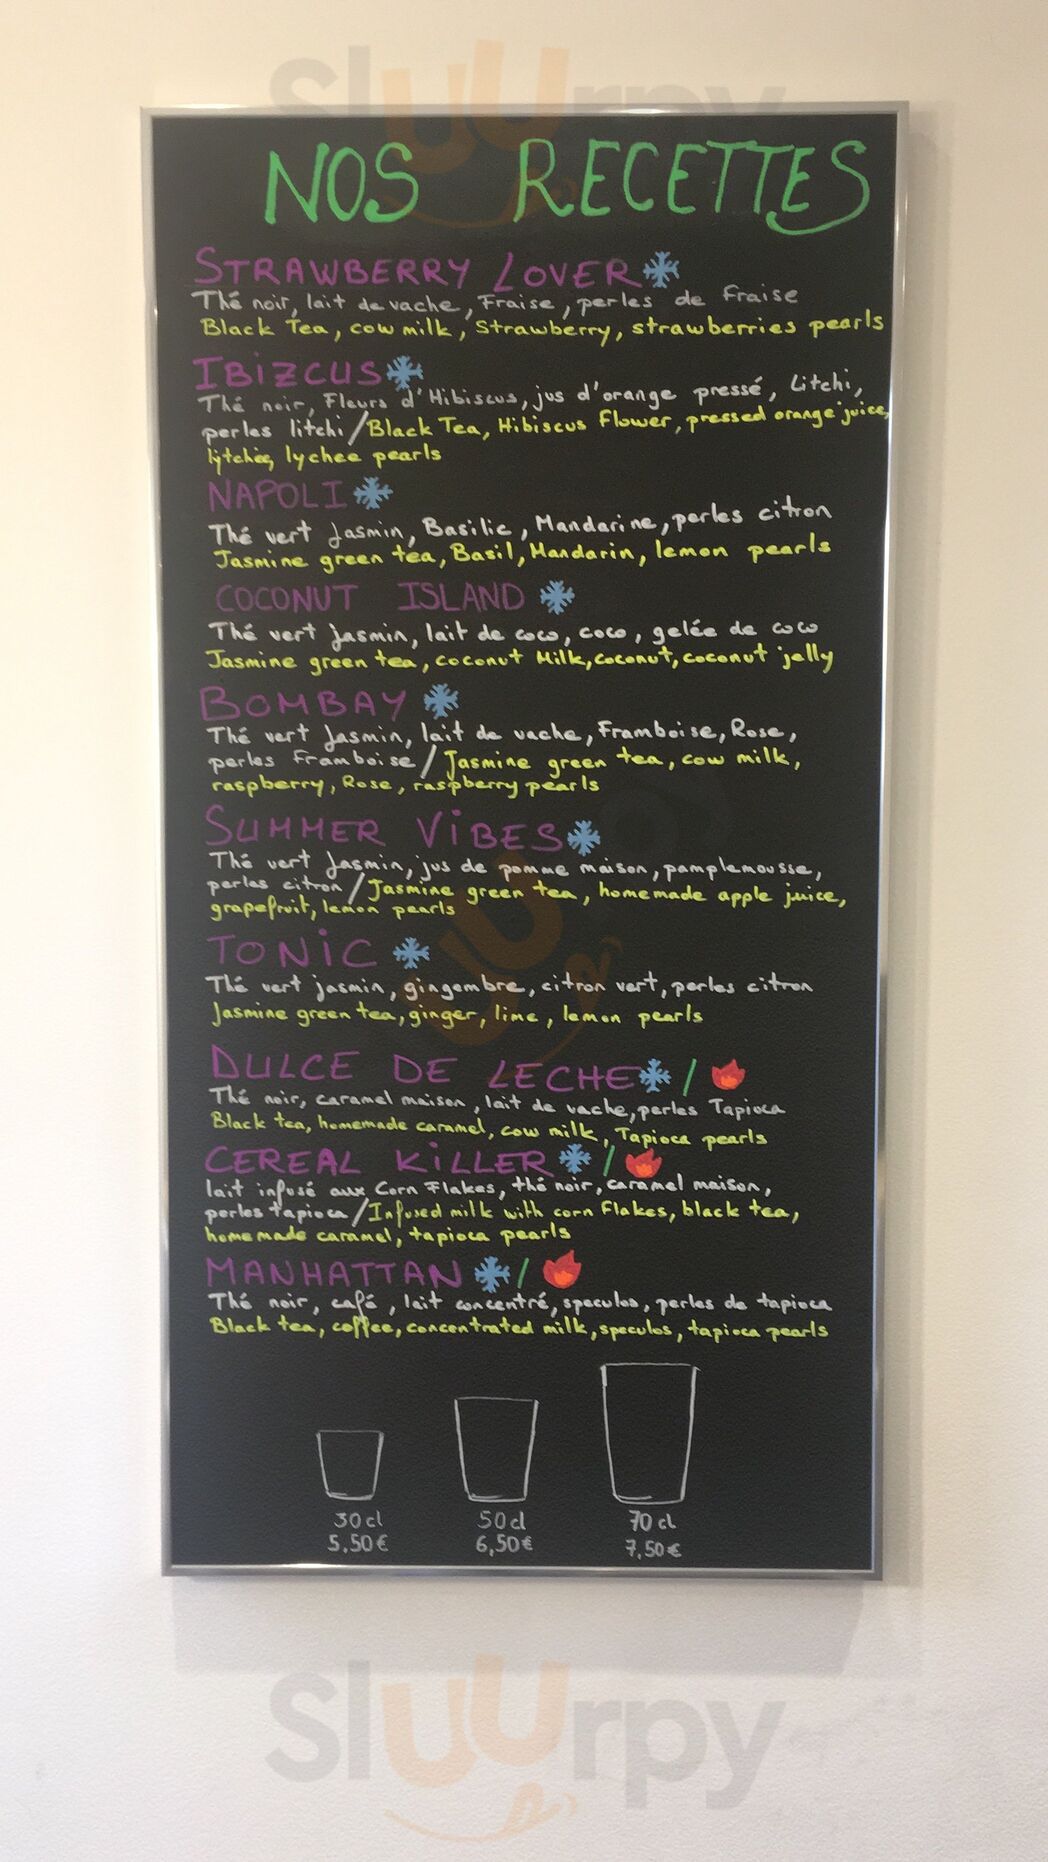 SluUrpy
NOS RECETTES
STRAWBERRY LOVER
Thé noir, lait de vache, Fraise, perles de fraise
Black Tea, cow milk, Strawberry, strawberries pearls
IBIZCUS
Thé noir, Fleurs d'Hibiscus, jus d'orange pressé, Litchi,
perles litchi/Black Tea, Hibiscus Flower, pressed orange juice,
lytchee, lychee pearls
NAPOLI
Thé vert Jasmin, Basilic, Mandarine, perles citron
Jasmine green tea, Basil, Mandarin, lemon pearls
COCONUT ISLAND
Thé vert jasmin, lait de coco, coco, gelée de coco
Jasmine green tea, coconut Milk, coconut, coconut jelly
BOMBAY
Thé vert Jasmin, lait de vache, Framboise, Rose,
perles Framboise / Jasmine green tea, cow milk,
raspberry, Rose, raspberry pearls
SUMMER VIBES
Thé vert Jasmin, jus de pomme maison, pamplemousse,
perles citron / Jasmine green tea, homemade apple juice,
grapefruit, lemon pearls
TONIC
Thé vert jasmin, gingembre, citron vert, perles citron
Jasmine green tea, ginger, lime, lemon pearls
DULCE DE LECHE /
Thé noir, caramel maison, lait de vache, perles Tapioca
Black tea, homemade caramel, cow milk, Tapioca pearls
CEREAL KILLER /
lait infusé aux Corn Flakes, thé noir, caramel maison,
perles tapioca/Infused milk with corn Flakes, black tea,
homemade caramel, tapioca pearls
MANHATTAN /
Thé noir, café, lait concentré, speculos, perles de tapioca
Black tea, coffee, concentrated milk, speculos, tapioca pearls
30 cl 50 cl 70 cl
5,50€ 6,50€ 7,50€
SluUrpy